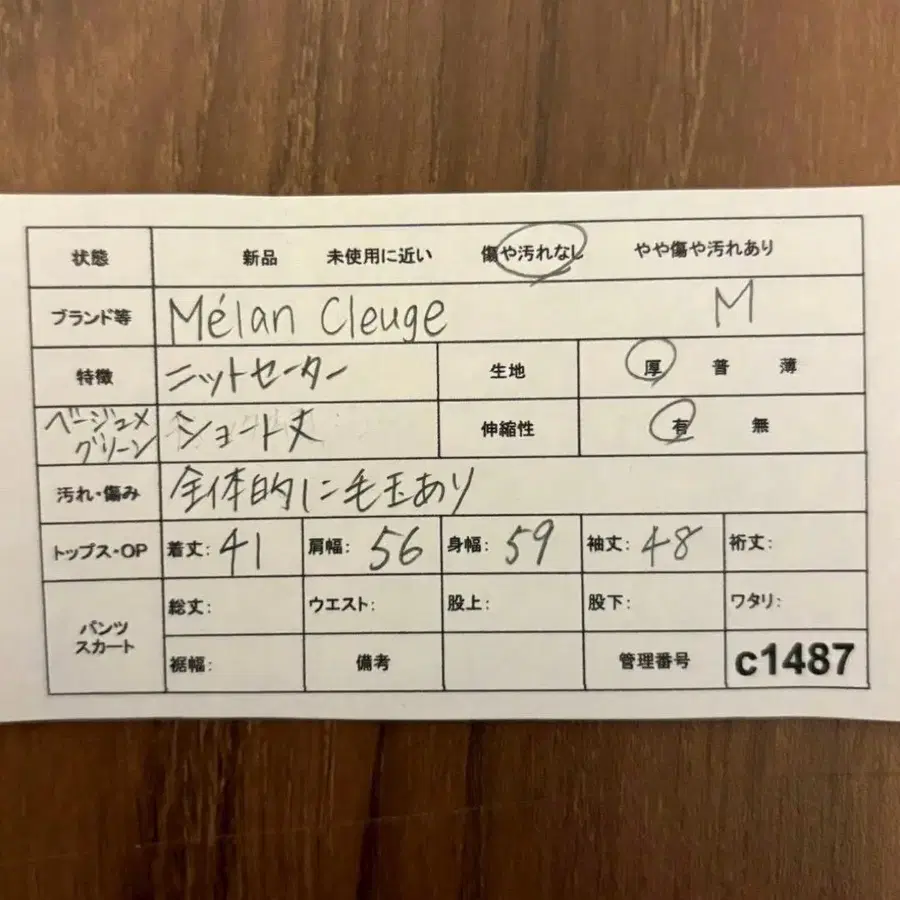 状態 新品 未使用に近い 傷や汚れなし やや傷や汚れあり
ブランド等 Mélan Cleuge M
特徴 ニットセーター 生地 厚 普 薄
ベージュ× グリーン ショート丈 伸縮性 有 無
汚れ・傷み 全体的に毛玉あり
トップス・OP 着丈: 41 肩幅: 56 身幅: 59 袖丈: 48 裄丈:
パンツ スカート 総丈: ウエスト: 股上: 股下: ワタリ:
裾幅: 備考 管理番号 c1487